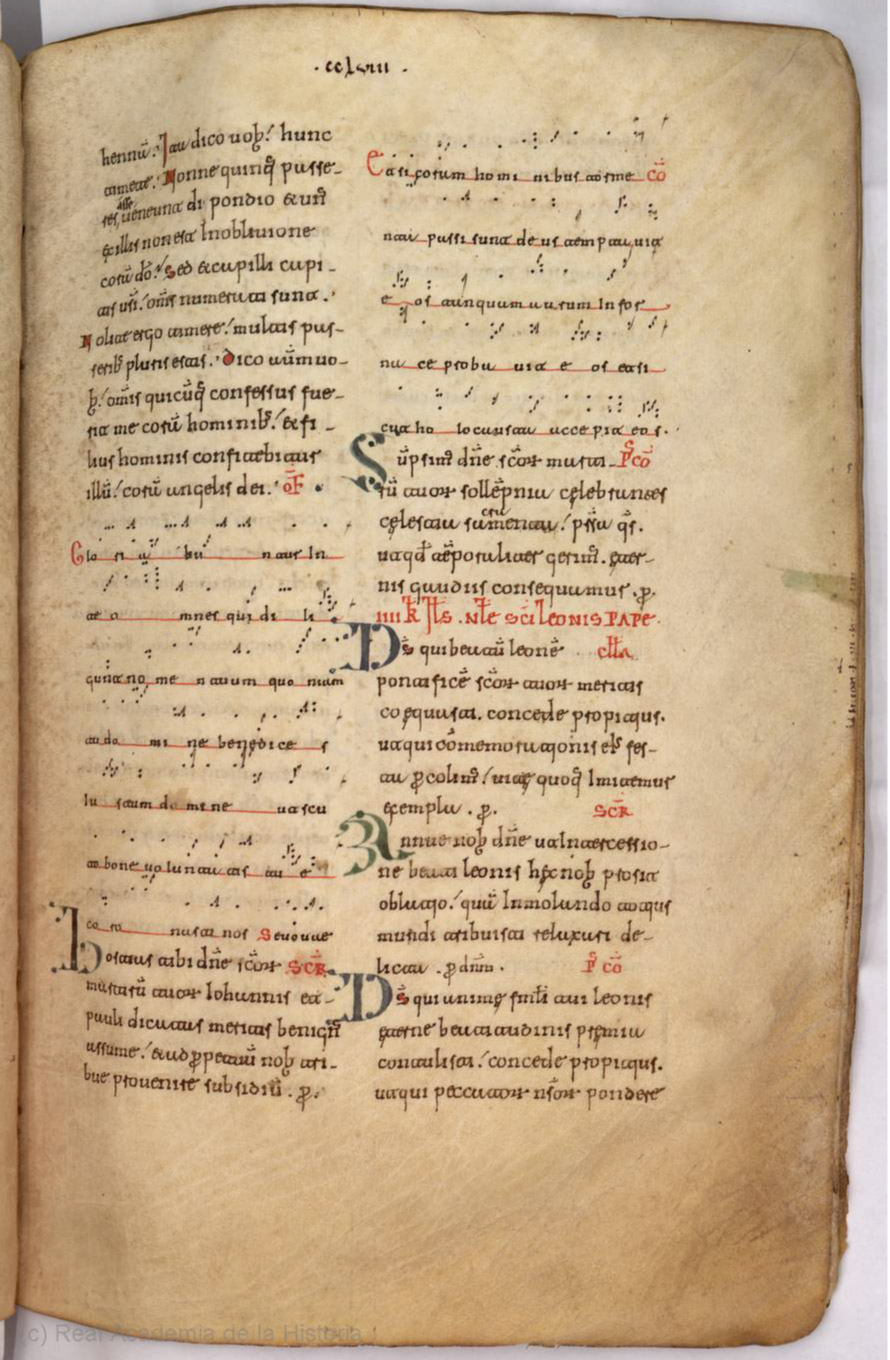 . cclviii .
hennā. Ita dico uob: hunc
timete. Nonne quinq; passe-
res ueneunt di pondio & unꝰ
ex illis non est In obliuione
corā dō: Sed & capilli capi-
tis uri: om̄s numerati sunt.
Nolite ergo timere: multis pas-
serib; pluris estis. Dico autem uo-
b: om̄is quicūq; confessus fue-
rit me corā hominib: & fi-
lius hominis confitebitur
illū: corā angelis dei. OF
Glo ri a bu ntur In
te o mnes qui di li
gunt no me n tuum quo niam
tu do mi ne benedice s
Iu stum do mi ne ut scu
to bone uo lun ta tis tu e
co ro nasti nos Seuouae
Hostias tibi dn̄e scōꝝ SCR
martirū tuoꝝ Iohannis et
pauli dicatas meritis benignꝰ
assume: & ad ꝓpetuū nob tri-
bue prouenire subsidiū. ꝑ.
Et si coram homi nibus torme CŌ
nta passi sunt de us temptauit
e os tanquam aurum In for
na ce probа uit e os et si
cut ho locausta accepit eos.
Sūpsimꝰ dn̄e scōꝝ marti- P̄ CŌ
rū tuoꝝ sollēpnia celebrantes
celestia sacramenta: p̄sta q̄s.
ut qd̄ tēporaliter gerimꝰ. eter-
nis gaudiis consequamur. ꝑ.
IIII K̄ IL̄S . NL̄E SC̄I LEONIS PAPE
Ds̄ qui beatū leonē cll̄a
pontificē scōꝝ tuoꝝ meritis
coequasti. concede propitius.
ut qui cōmemorationis eiꝰ fes-
ta ꝑcolimꝰ: uite quoq; Imitemur
exempla. ꝑ. SCR
Annue nob dn̄e ut Intercessio-
ne beati leonis hec nob prosit
oblatio: quā Inmolando totius
mundi tribuisti relaxari de-
licta. ꝑ dn̄m. P̄ CŌ
Ds̄ qui anime famli tui leonis
eterne beatitudinis premia
contulisti: concede propitius.
ut qui peccatoꝝ nr̄oꝝ pondere
c) Real Academia de la Historia